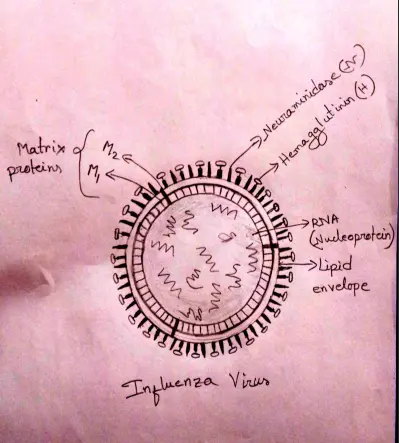 Neuraminidase (N)
Hemagglutinin (H)
Matrix
proteins
M2
M1
RNA
(Nucleoprotein)
Lipid
envelope
Influenza Virus